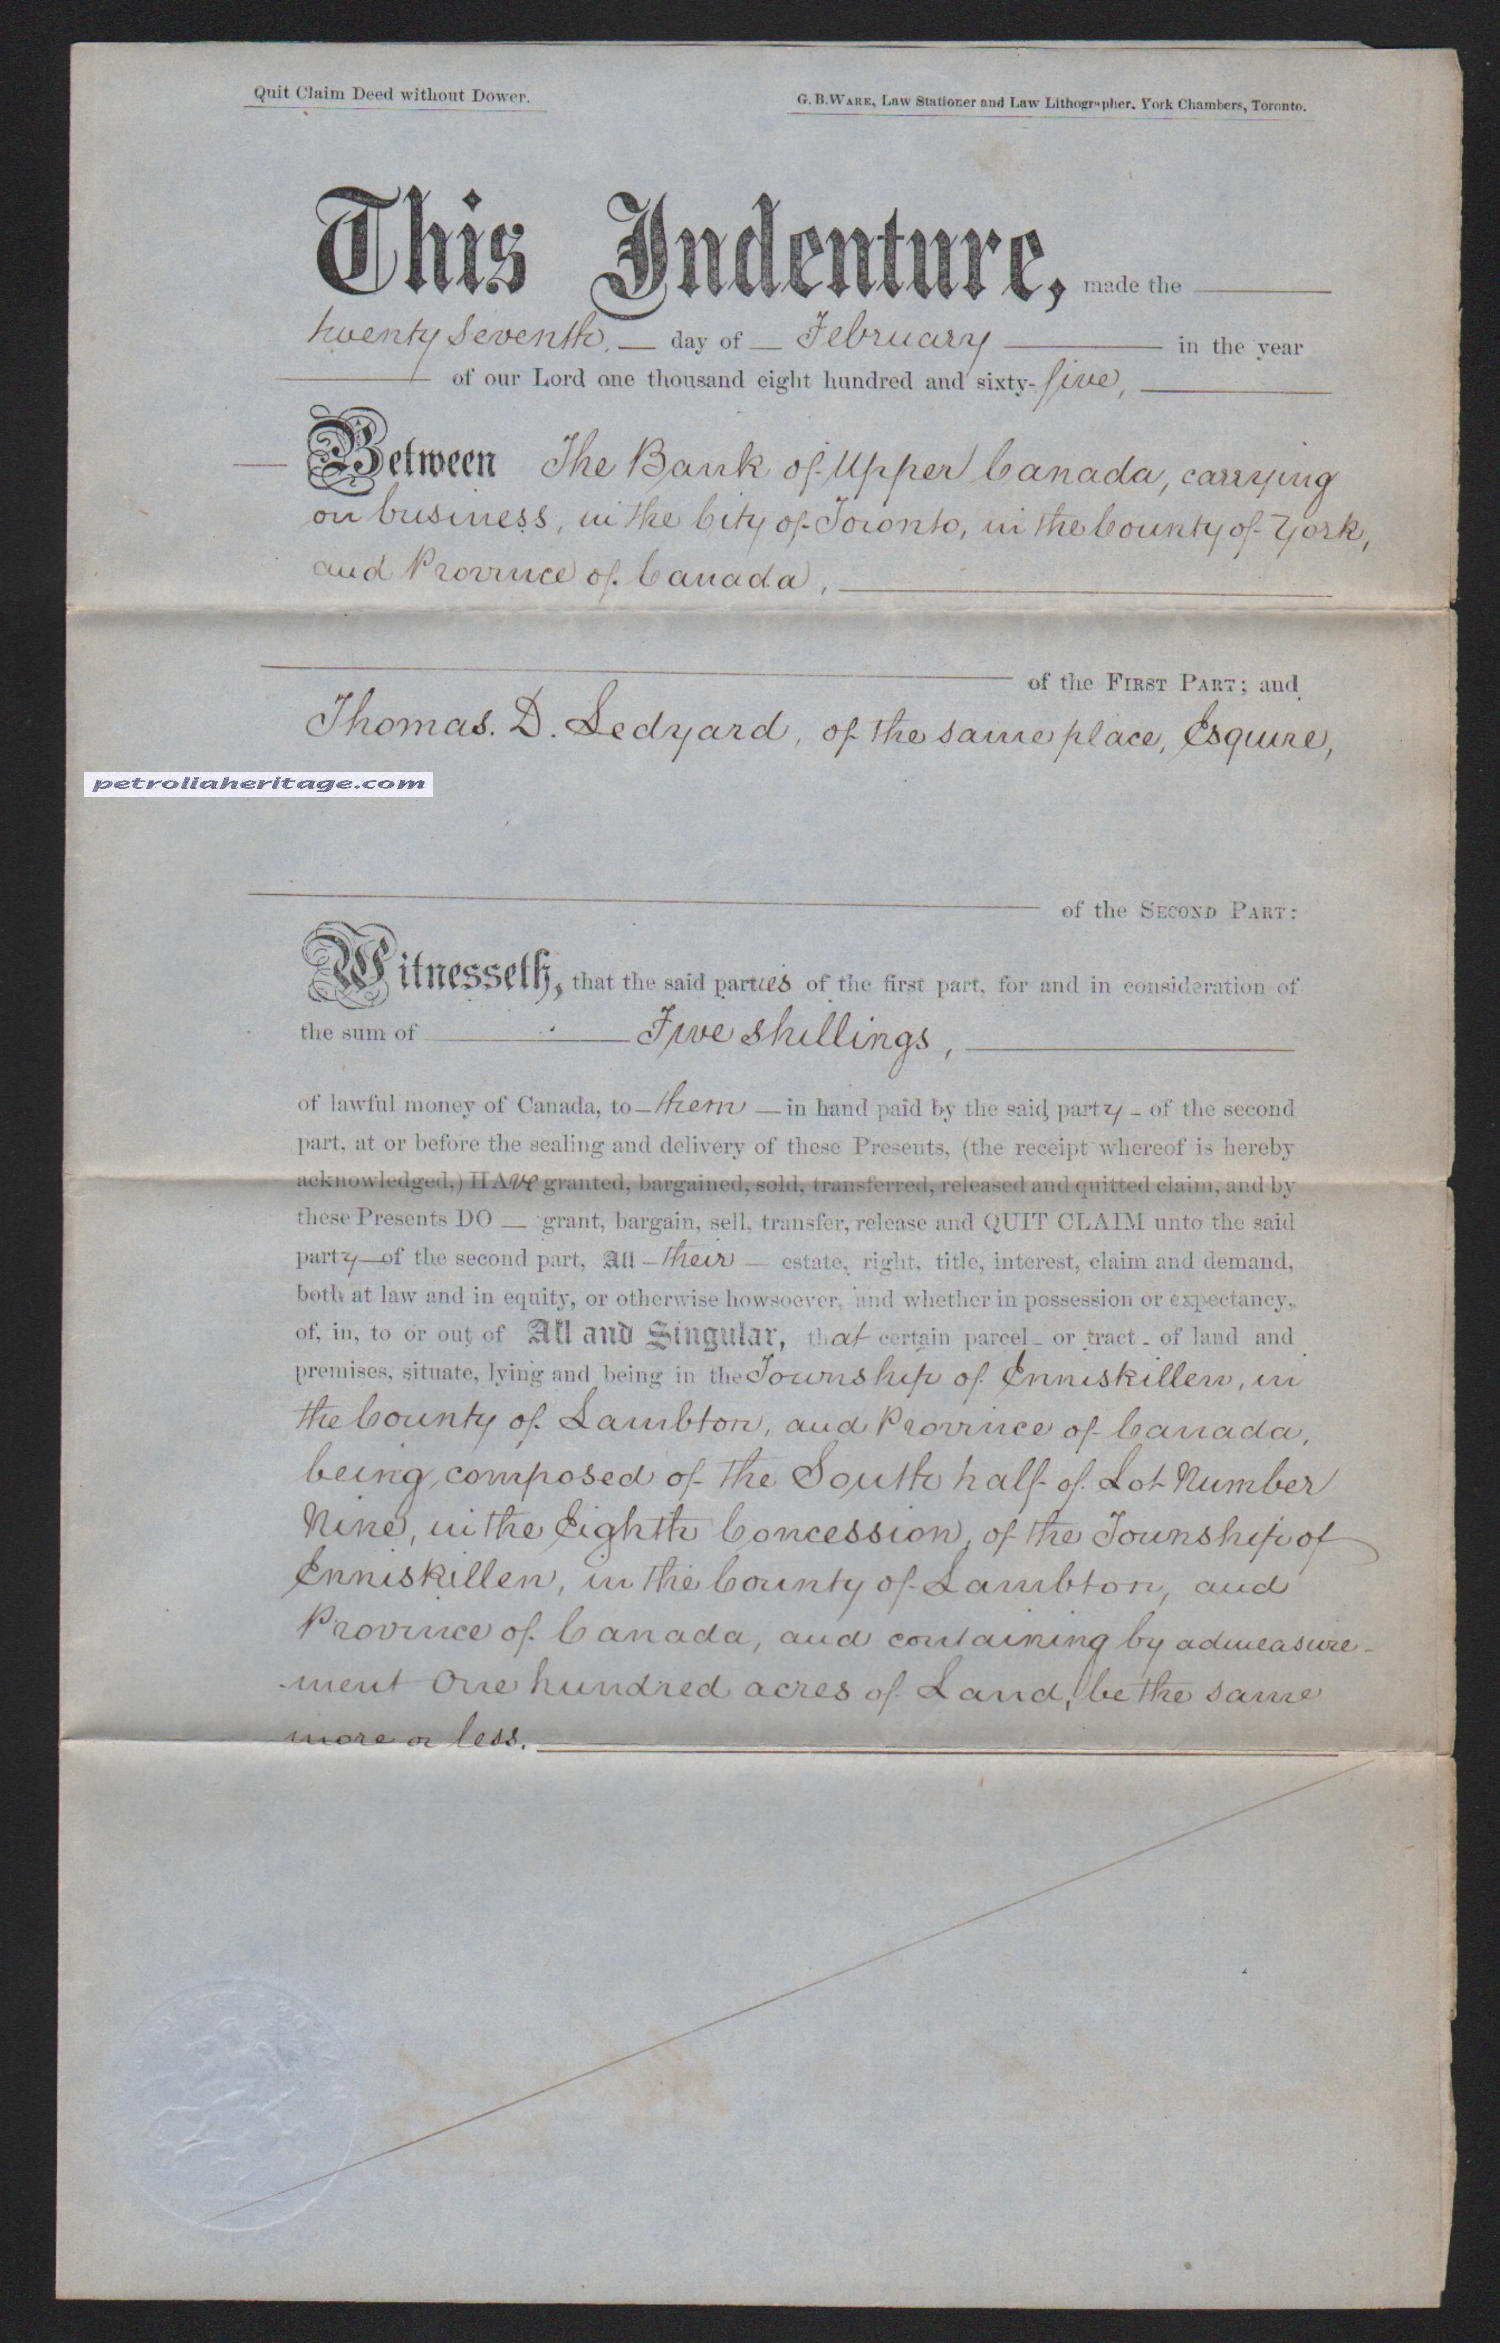 Quit Claim Deed without Dower.
G. B. WARE, Law Stationer and Law Lithographer. York Chambers, Toronto.
This Indenture, made the
twenty seventh day of February in the year
of our Lord one thousand eight hundred and sixty-five,
Between The Bank of Upper Canada, carrying
on business, in the City of Toronto, in the County of York,
and Province of Canada,
of the FIRST PART; and
Thomas. D. Ledyard, of the same place, Esquire,
petroliaheritage.com
of the SECOND PART:
Witnesseth, that the said parties of the first part, for and in consideration of
the sum of Five shillings,
of lawful money of Canada, to them in hand paid by the said party of the second
part, at or before the sealing and delivery of these Presents, (the receipt whereof is hereby
acknowledged,) HAve granted, bargained, sold, transferred, released and quitted claim, and by
these Presents DO grant, bargain, sell, transfer, release and QUIT CLAIM unto the said
party of the second part, All their estate, right, title, interest, claim and demand,
both at law and in equity, or otherwise howsoever, and whether in possession or expectancy,
of, in, to or out of All and Singular, that certain parcel or tract of land and
premises, situate, lying and being in the Township of Enniskillen, in
the County of Lambton, and Province of Canada,
being composed of the South half of Lot Number
Nine, in the Eighth Concession, of the Township of
Enniskillen, in the County of Lambton, and
Province of Canada, and containing by admeasure-
-ment One hundred acres of Land, be the same
more or less.